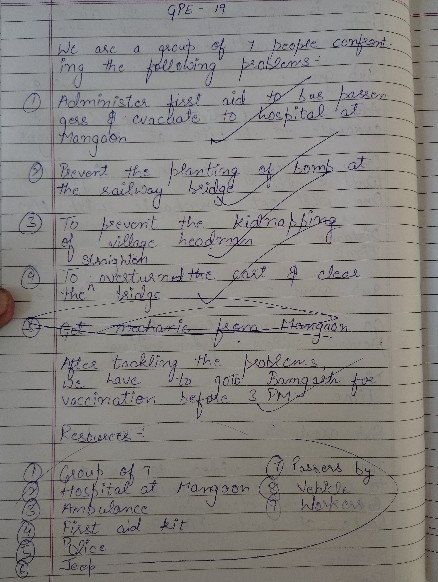 GPE - 19
We are a group of 7 people confront-
ing the following problems:-
① Administer first aid to bus passen
gers & evacuate to hospital at
Mangaon
② Prevent the planting of bomb at
the railway bridge
③ To prevent the kidnapping
of village headman
straighten
④ To overturned the cart & clear
the bridge
⑤ Get mechanic from Mangaon
After tackling the problems
we have to goto Ramgarh for
vaccination before 3 PM
Resources :-
① Group of 7 ⑦ Passers by
② Hospital at Mangaon ⑧ Vehicle
③ Ambulance ⑨ Workers
④ First aid kit
⑤ Police
⑥ Jeep